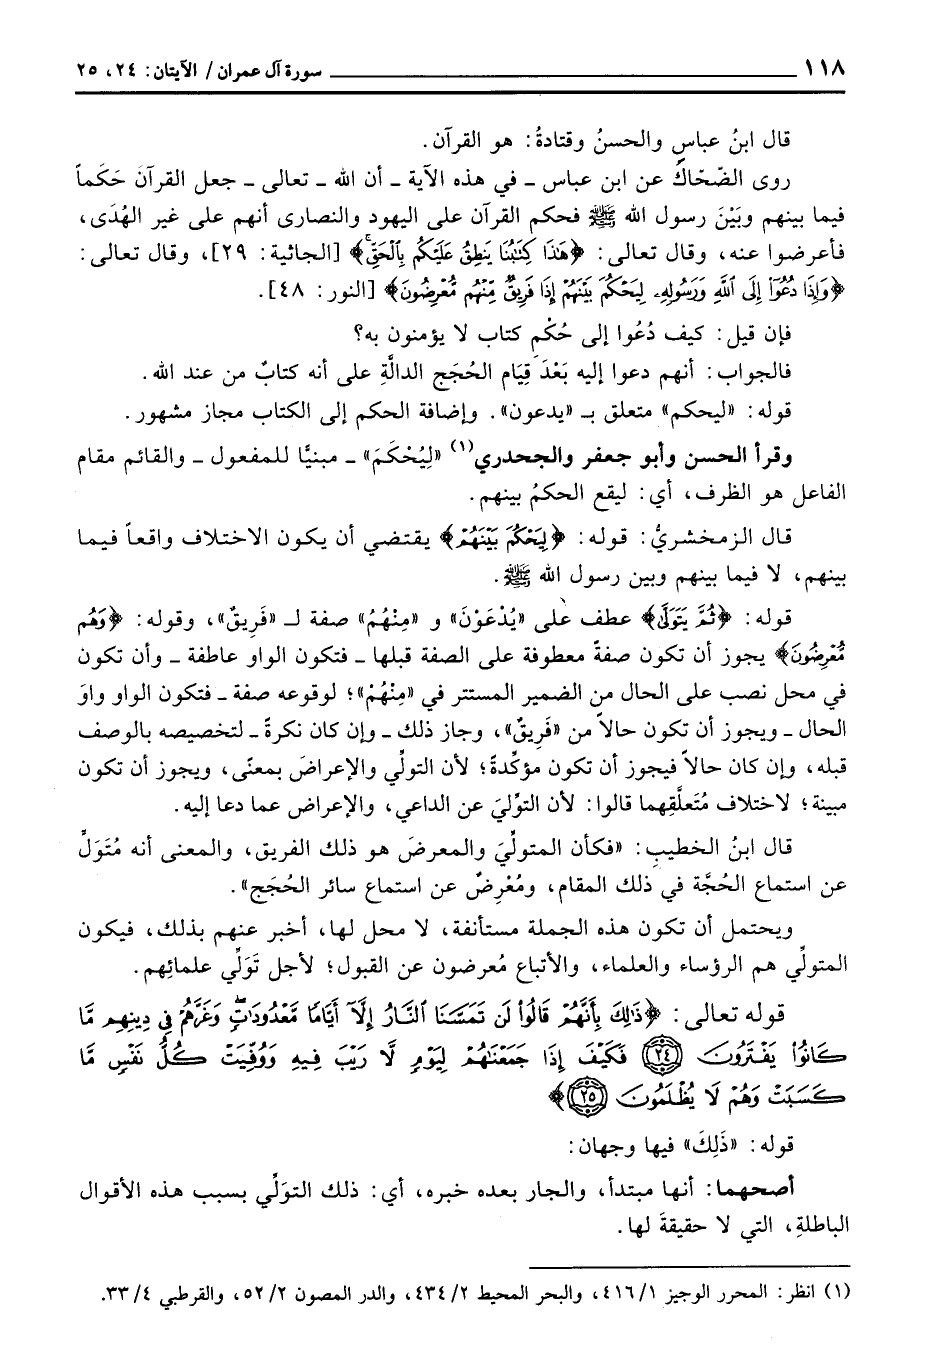 ١١٨ ــــــــــــــــــــــــ سورة آل عمران / الآيتان: ٢٤، ٢٥
قال ابنُ عباسٍ والحسنُ وقتادةُ: هو القرآن.
روى الضّحّاكُ عن ابن عباس ـ في هذه الآية ـ أن الله ـ تعالى ـ جعل القرآنَ حَكَماً
فيما بينهم وبَيْنَ رسول الله ﷺ فحكم القرآن على اليهود والنصارى أنهم على غير الهُدَى،
فأعرضوا عنه، وقال تعالى: ﴿هَٰذَا كِتَٰبُنَا يَنطِقُ عَلَيۡكُم بِٱلۡحَقِّۚ﴾ [الجاثية: ٢٩]، وقال تعالى:
﴿وَإِذَا دُعُوٓاْ إِلَى ٱللَّهِ وَرَسُولِهِۦ لِيَحۡكُمَ بَيۡنَهُمۡ إِذَا فَرِيقٞ مِّنۡهُم مُّعۡرِضُونَ﴾ [النور: ٤٨].
فإن قيل: كيف دُعُوا إلى حُكْمِ كتاب لا يؤمنون به؟
فالجواب: أنهم دعوا إليه بَعْدَ قِيَام الحُجَج الدالَّةِ على أنه كتابٌ من عند الله.
قوله: «ليحكم» متعلق بـ «يدعون». وإضافة الحكم إلى الكتاب مجاز مشهور.
وقرأ الحسن وأبو جعفر والجحدري(١) «لِيُحْكَمَ» ـ مبنيًّا للمفعول ـ والقائم مقام
الفاعل هو الظرف، أي: ليقع الحكمُ بينهم.
قال الزمخشريُّ: قوله: ﴿لِيَحۡكُمَ بَيۡنَهُمۡ﴾ يقتضي أن يكون الاختلاف واقعاً فيما
بينهم، لا فيما بينهم وبين رسول الله ﷺ.
قوله: ﴿ثُمَّ يَتَوَلَّىٰ﴾ عطف على «يُدْعَوْنَ» و «مِنْهُمُ» صفة لـ «فَرِيقٌ»، وقوله: ﴿وَهُم
مُّعۡرِضُونَ﴾ يجوز أن تكون صفةً معطوفة على الصفة قبلها ـ فتكون الواو عاطفة ـ وأن تكون
في محل نصب على الحال من الضمير المستتر في «مِنْهُمْ»؛ لوقوعه صفة ـ فتكون الواو واوَ
الحال ـ ويجوز أن تكون حالاً من «فَرِيقٌ»، وجاز ذلك ـ وإن كان نكرةً ـ لتخصيصه بالوصف
قبله، وإن كان حالاً فيجوز أن تكون مؤكِّدةً؛ لأن التولِّي والإعراضَ بمعنًى، ويجوز أن تكون
مبينة؛ لاختلاف مُتَعلَّقِهما قالوا: لأن التولِّيَ عن الداعي، والإعراض عما دعا إليه.
قال ابنُ الخطيبِ: «فكأن المتولِّيَ والمعرضَ هو ذلك الفريق، والمعنى أنه مُتَوَلٍّ
عن استماع الحُجَّة في ذلك المقام، ومُعْرِضٌ عن استماع سائر الحُجَج».
ويحتمل أن تكون هذه الجملة مستأنفة، لا محل لها، أخبر عنهم بذلك، فيكون
المتولِّي هم الرؤساء والعلماء، والأتباع مُعرضون عن القبول؛ لأجل تَوَلِّي علمائِهم.
قوله تعالى: ﴿ذَٰلِكَ بِأَنَّهُمۡ قَالُواْ لَن تَمَسَّنَا ٱلنَّارُ إِلَّآ أَيَّامٗا مَّعۡدُودَٰتٖۖ وَغَرَّهُمۡ فِي دِينِهِم مَّا
كَانُواْ يَفۡتَرُونَ ٢٤ فَكَيۡفَ إِذَا جَمَعۡنَٰهُمۡ لِيَوۡمٖ لَّا رَيۡبَ فِيهِ وَوُفِّيَتۡ كُلُّ نَفۡسٖ مَّا
كَسَبَتۡ وَهُمۡ لَا يُظۡلَمُونَ ٢٥﴾
قوله: «ذَلِكَ» فيها وجهان:
أصحهما: أنها مبتدأ، والجار بعده خبره، أي: ذلك التولِّي بسبب هذه الأقوال
الباطلةِ، التي لا حقيقةَ لها.
(١) انظر: المحرر الوجيز ٤١٦/١، والبحر المحيط ٤٣٤/٢، والدر المصون ٥٢/٢، والقرطبي ٣٣/٤.